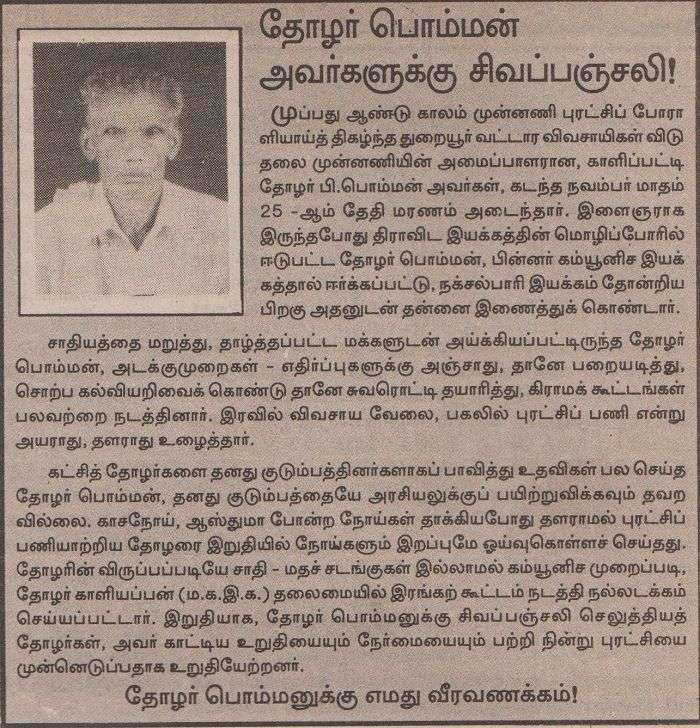 தோழர் பொம்மன்
அவர்களுக்கு சிவப்பஞ்சலி!
முப்பது ஆண்டு காலம் முன்னணி புரட்சிப் போரா
ளியாய்த் திகழ்ந்த துறையூர் வட்டார விவசாயிகள் விடு
தலை முன்னணியின் அமைப்பாளரான, காளிப்பட்டி
தோழர் பி.பொம்மன் அவர்கள், கடந்த நவம்பர் மாதம்
25 -ஆம் தேதி மரணம் அடைந்தார். இளைஞராக
இருந்தபோது திராவிட இயக்கத்தின் மொழிப்போரில்
ஈடுபட்ட தோழர் பொம்மன், பின்னர் கம்யூனிச இயக்
கத்தால் ஈர்க்கப்பட்டு, நக்சல்பாரி இயக்கம் தோன்றிய
பிறகு அதனுடன் தன்னை இணைத்துக் கொண்டார்.
சாதியத்தை மறுத்து, தாழ்த்தப்பட்ட மக்களுடன் அய்க்கியப்பட்டிருந்த தோழர்
பொம்மன், அடக்குமுறைகள் - எதிர்ப்புகளுக்கு அஞ்சாது, தானே பறையடித்து,
சொற்ப கல்வியறிவைக் கொண்டு தானே சுவரொட்டி தயாரித்து, கிராமக் கூட்டங்கள்
பலவற்றை நடத்தினார். இரவில் விவசாய வேலை, பகலில் புரட்சிப் பணி என்று
அயராது, தளராது உழைத்தார்.
கட்சித் தோழர்களை தனது குடும்பத்தினர்களாகப் பாவித்து உதவிகள் பல செய்த
தோழர் பொம்மன், தனது குடும்பத்தையே அரசியலுக்குப் பயிற்றுவிக்கவும் தவற
வில்லை. காசநோய், ஆஸ்துமா போன்ற நோய்கள் தாக்கியபோது தளராமல் புரட்சிப்
பணியாற்றிய தோழரை இறுதியில் நோய்களும் இறப்புமே ஓய்வுகொள்ளச் செய்தது.
தோழரின் விருப்பப்படியே சாதி - மதச் சடங்குகள் இல்லாமல் கம்யூனிச முறைப்படி,
தோழர் காளியப்பன் (ம.க.இ.க.) தலைமையில் இரங்கற் கூட்டம் நடத்தி நல்லடக்கம்
செய்யப்பட்டார். இறுதியாக, தோழர் பொம்மனுக்கு சிவப்பஞ்சலி செலுத்தியத்
தோழர்கள், அவர் காட்டிய உறுதியையும் நேர்மையையும் பற்றி நின்று புரட்சியை
முன்னெடுப்பதாக உறுதியேற்றனர்.
தோழர் பொம்மனுக்கு எமது வீரவணக்கம்!